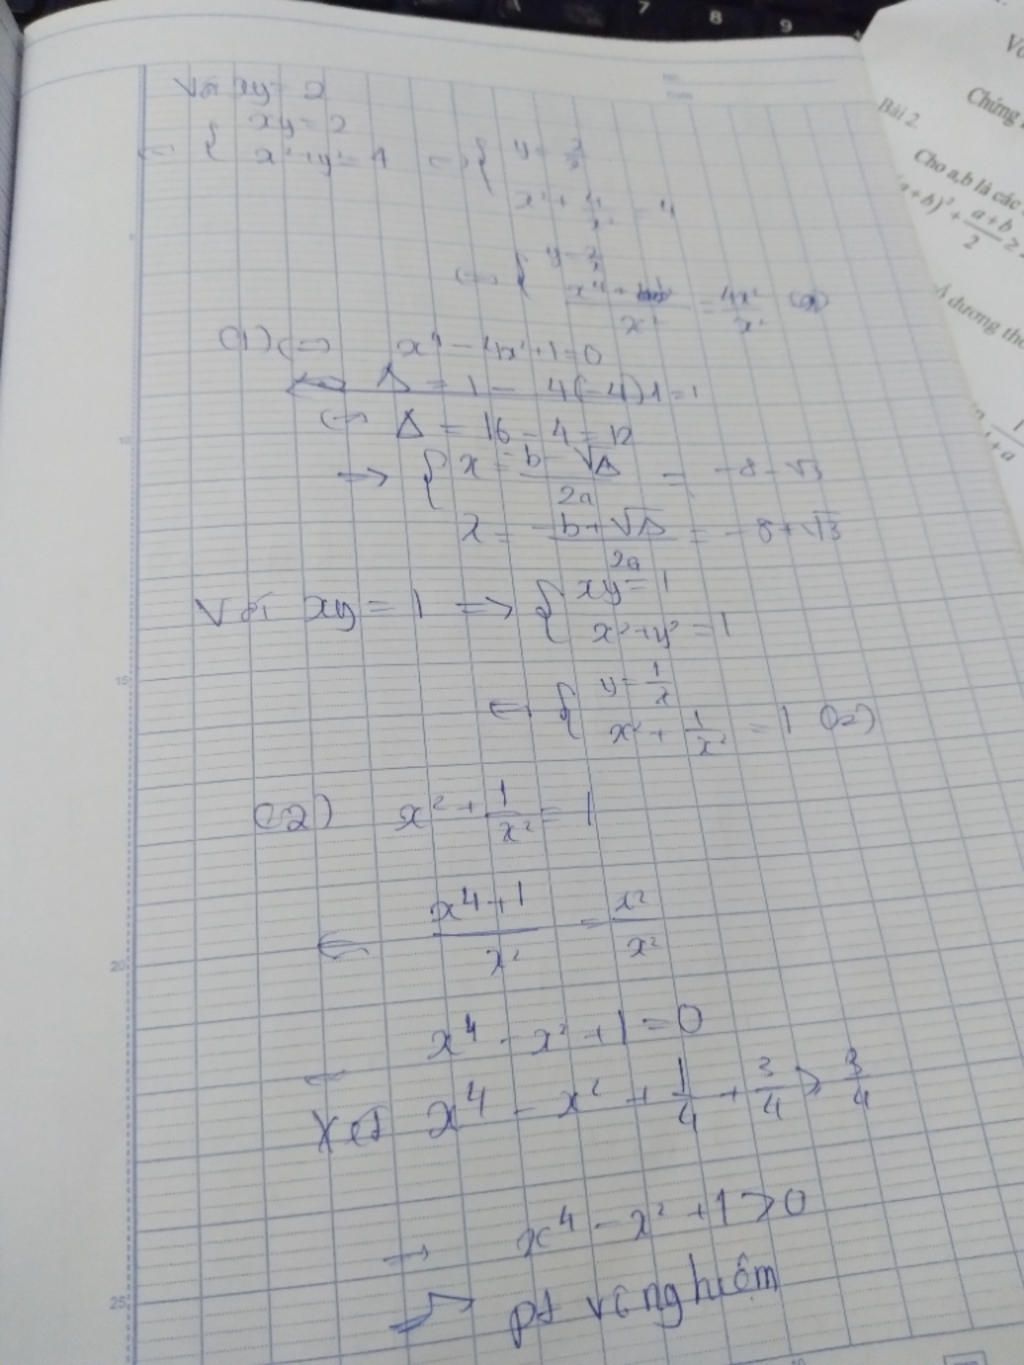 7 8 9
Với xy = 2
xy = 2
<=> { x² + y² = 4 => { y = 2/x
x² + 4/x² = 4
<=> { y = 2/x
x⁴ + / x² = 4x²/x²
(1) <=> x⁴ - 4x² + 1 = 0
Δ = 1 - 4(-4)1 = 1
<=> Δ = 16 - 4 = 12
=> { x = b - √Δ / 2a = -8 - √3
x = -b + √Δ / 2a = -8 + √3
Với xy = 1 => { xy = 1
x² + y² = 1
<=> { y = 1/x
x² + 1/x² = 1 (2)
(2) x² + 1/x² = 1
<= x⁴ + 1 / x² = x²/x²
x⁴ - x² + 1 = 0
Xét x⁴ - x² + 1/4 + 3/4 > 3/4
→ x⁴ - x² + 1 > 0
=> pt vô nghiệm
5
10
15
20
25
Chứng
Bài 2
Cho a,b là các
(a+b)² + a+b/2 ≥
dương